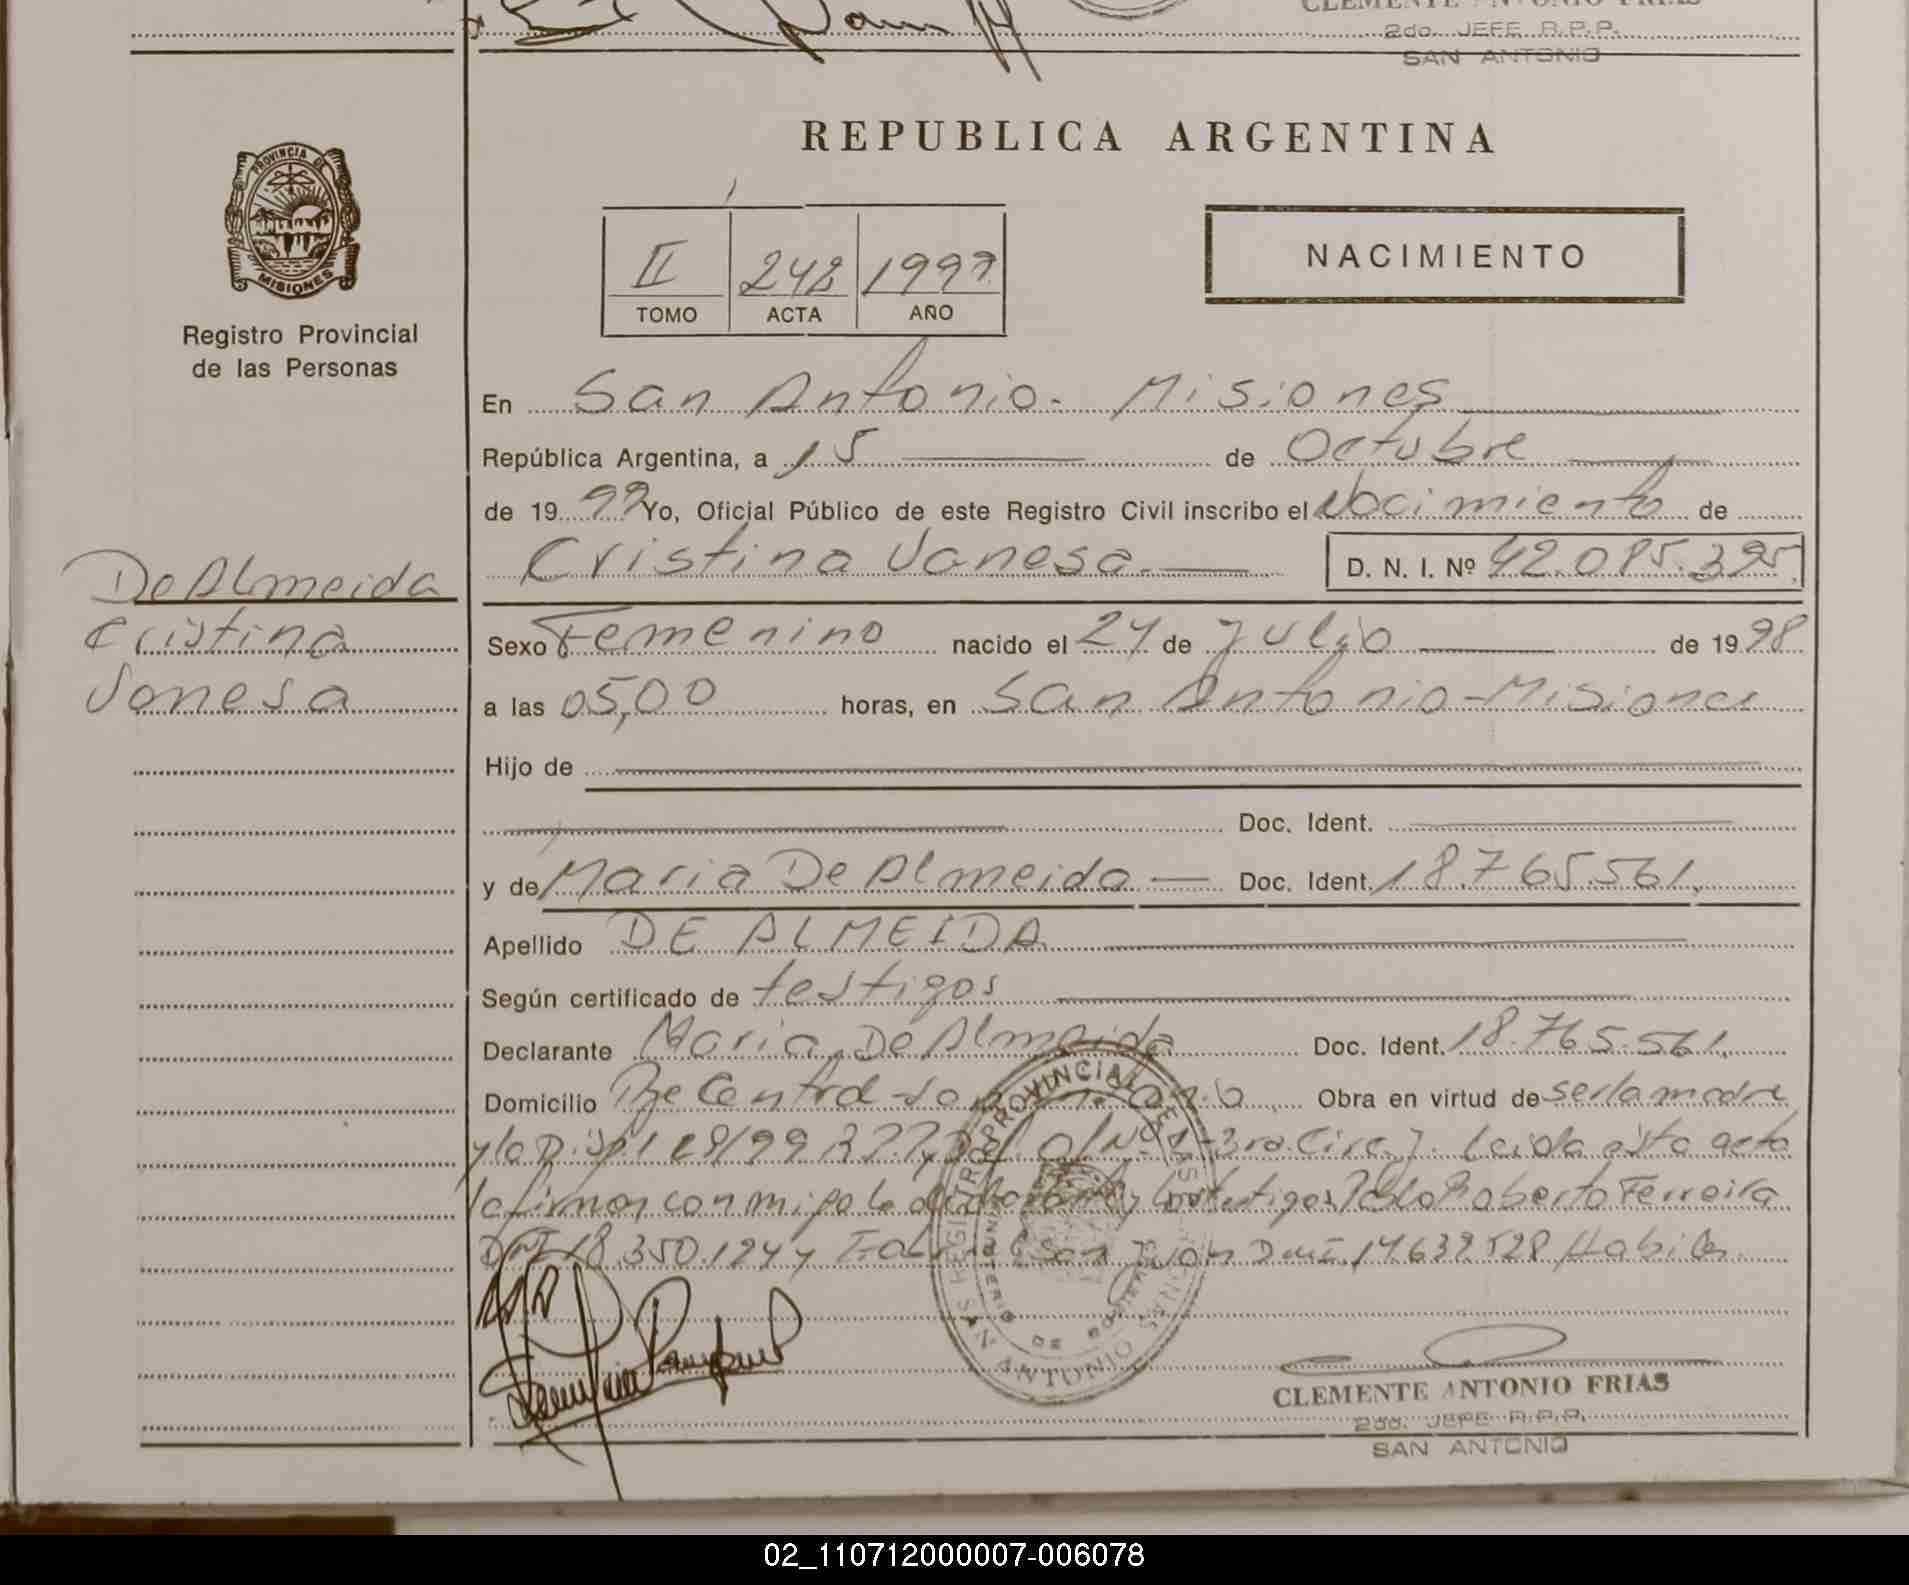 CLEMENTE ANTONIO FRIAS
2do. JEFE R.P.P.
SAN ANTONIO
PROVINCIA DE
MISIONES
Registro Provincial
de las Personas
REPUBLICA ARGENTINA
II 248 1999
TOMO ACTA AÑO
NACIMIENTO
En San Antonio - Misiones
República Argentina, a 15 de Octubre
de 19 99 Yo, Oficial Público de este Registro Civil inscribo el Nacimiento de
Cristina Vanesa. D. N. I. Nº 42.085.395
De Almeida
Cristina
Vanesa
Sexo Femenino nacido el 24 de Julio de 19 98
a las 05,00 horas, en San Antonio - Misiones
Hijo de
Doc. Ident.
y de Maria De Almeida Doc. Ident. 18.765.561.
Apellido DE ALMEIDA
Según certificado de testigos
Declarante Maria De Almeida Doc. Ident. 18.765.561.
Domicilio Centro San Antonio Obra en virtud de ser la madre
y la 3ra. Circ. Leida esta acta
la firman con migo la declarante y los testigos Pablo Roberto Ferreira
18.350.124 y San Juan 17.639.528 Habiles.
REGISTRO PROVINCIAL DE LAS PERSONAS
MINISTERIO DE GOBIERNO
SAN ANTONIO
CLEMENTE ANTONIO FRIAS
2do. JEFE R.P.P.
SAN ANTONIO
02_110712000007-006078